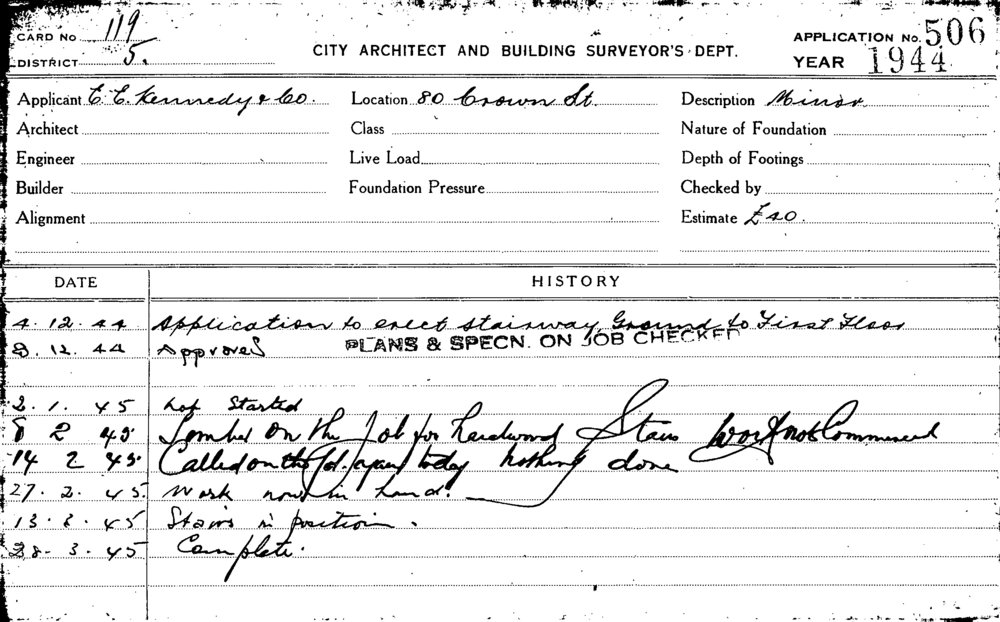 CARD No 119
DISTRICT 5.
CITY ARCHITECT AND BUILDING SURVEYOR'S DEPT.
APPLICATION No. 506
YEAR 1944
Applicant E. E. Kennedy & Co. Location 80 Crown St. Description Minor
Architect Class Nature of Foundation
Engineer Live Load Depth of Footings
Builder Foundation Pressure Checked by
Alignment Estimate £40.
DATE HISTORY
4.12.44 Application to erect stairway, Ground to First Floor
8.12.44 Approved PLANS & SPECN. ON JOB CHECKED
2.1.45 Not Started
8 2 45 Timber on the Job for hardwood Stairs Work not Commenced
14 2 45 Called on the Job again today nothing done
27.2.45. Work now in hand.
13.3.45 Stairs in position.
28.3.45 Complete.